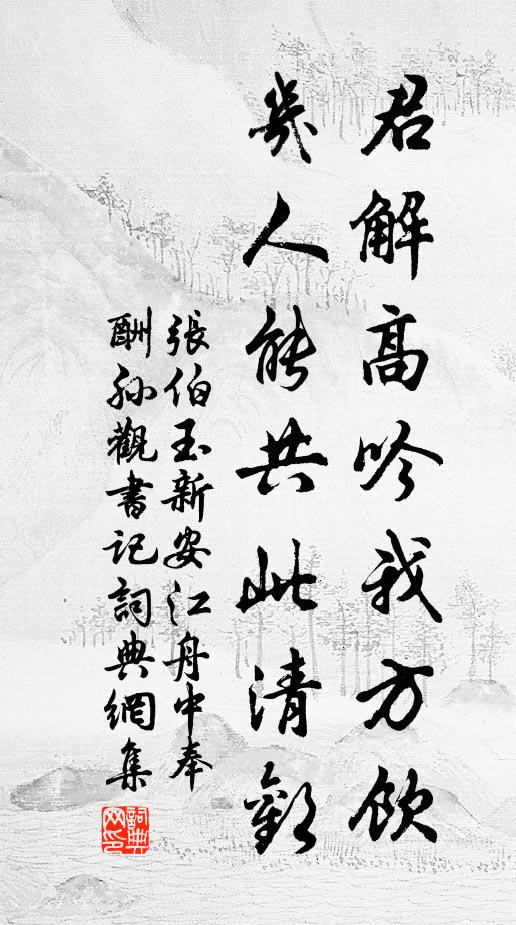 君解高吟我方飲
幾人能共此清歡
張伯玉新安江舟中奉
酬孫觀書記詞典網集
詞典
网印